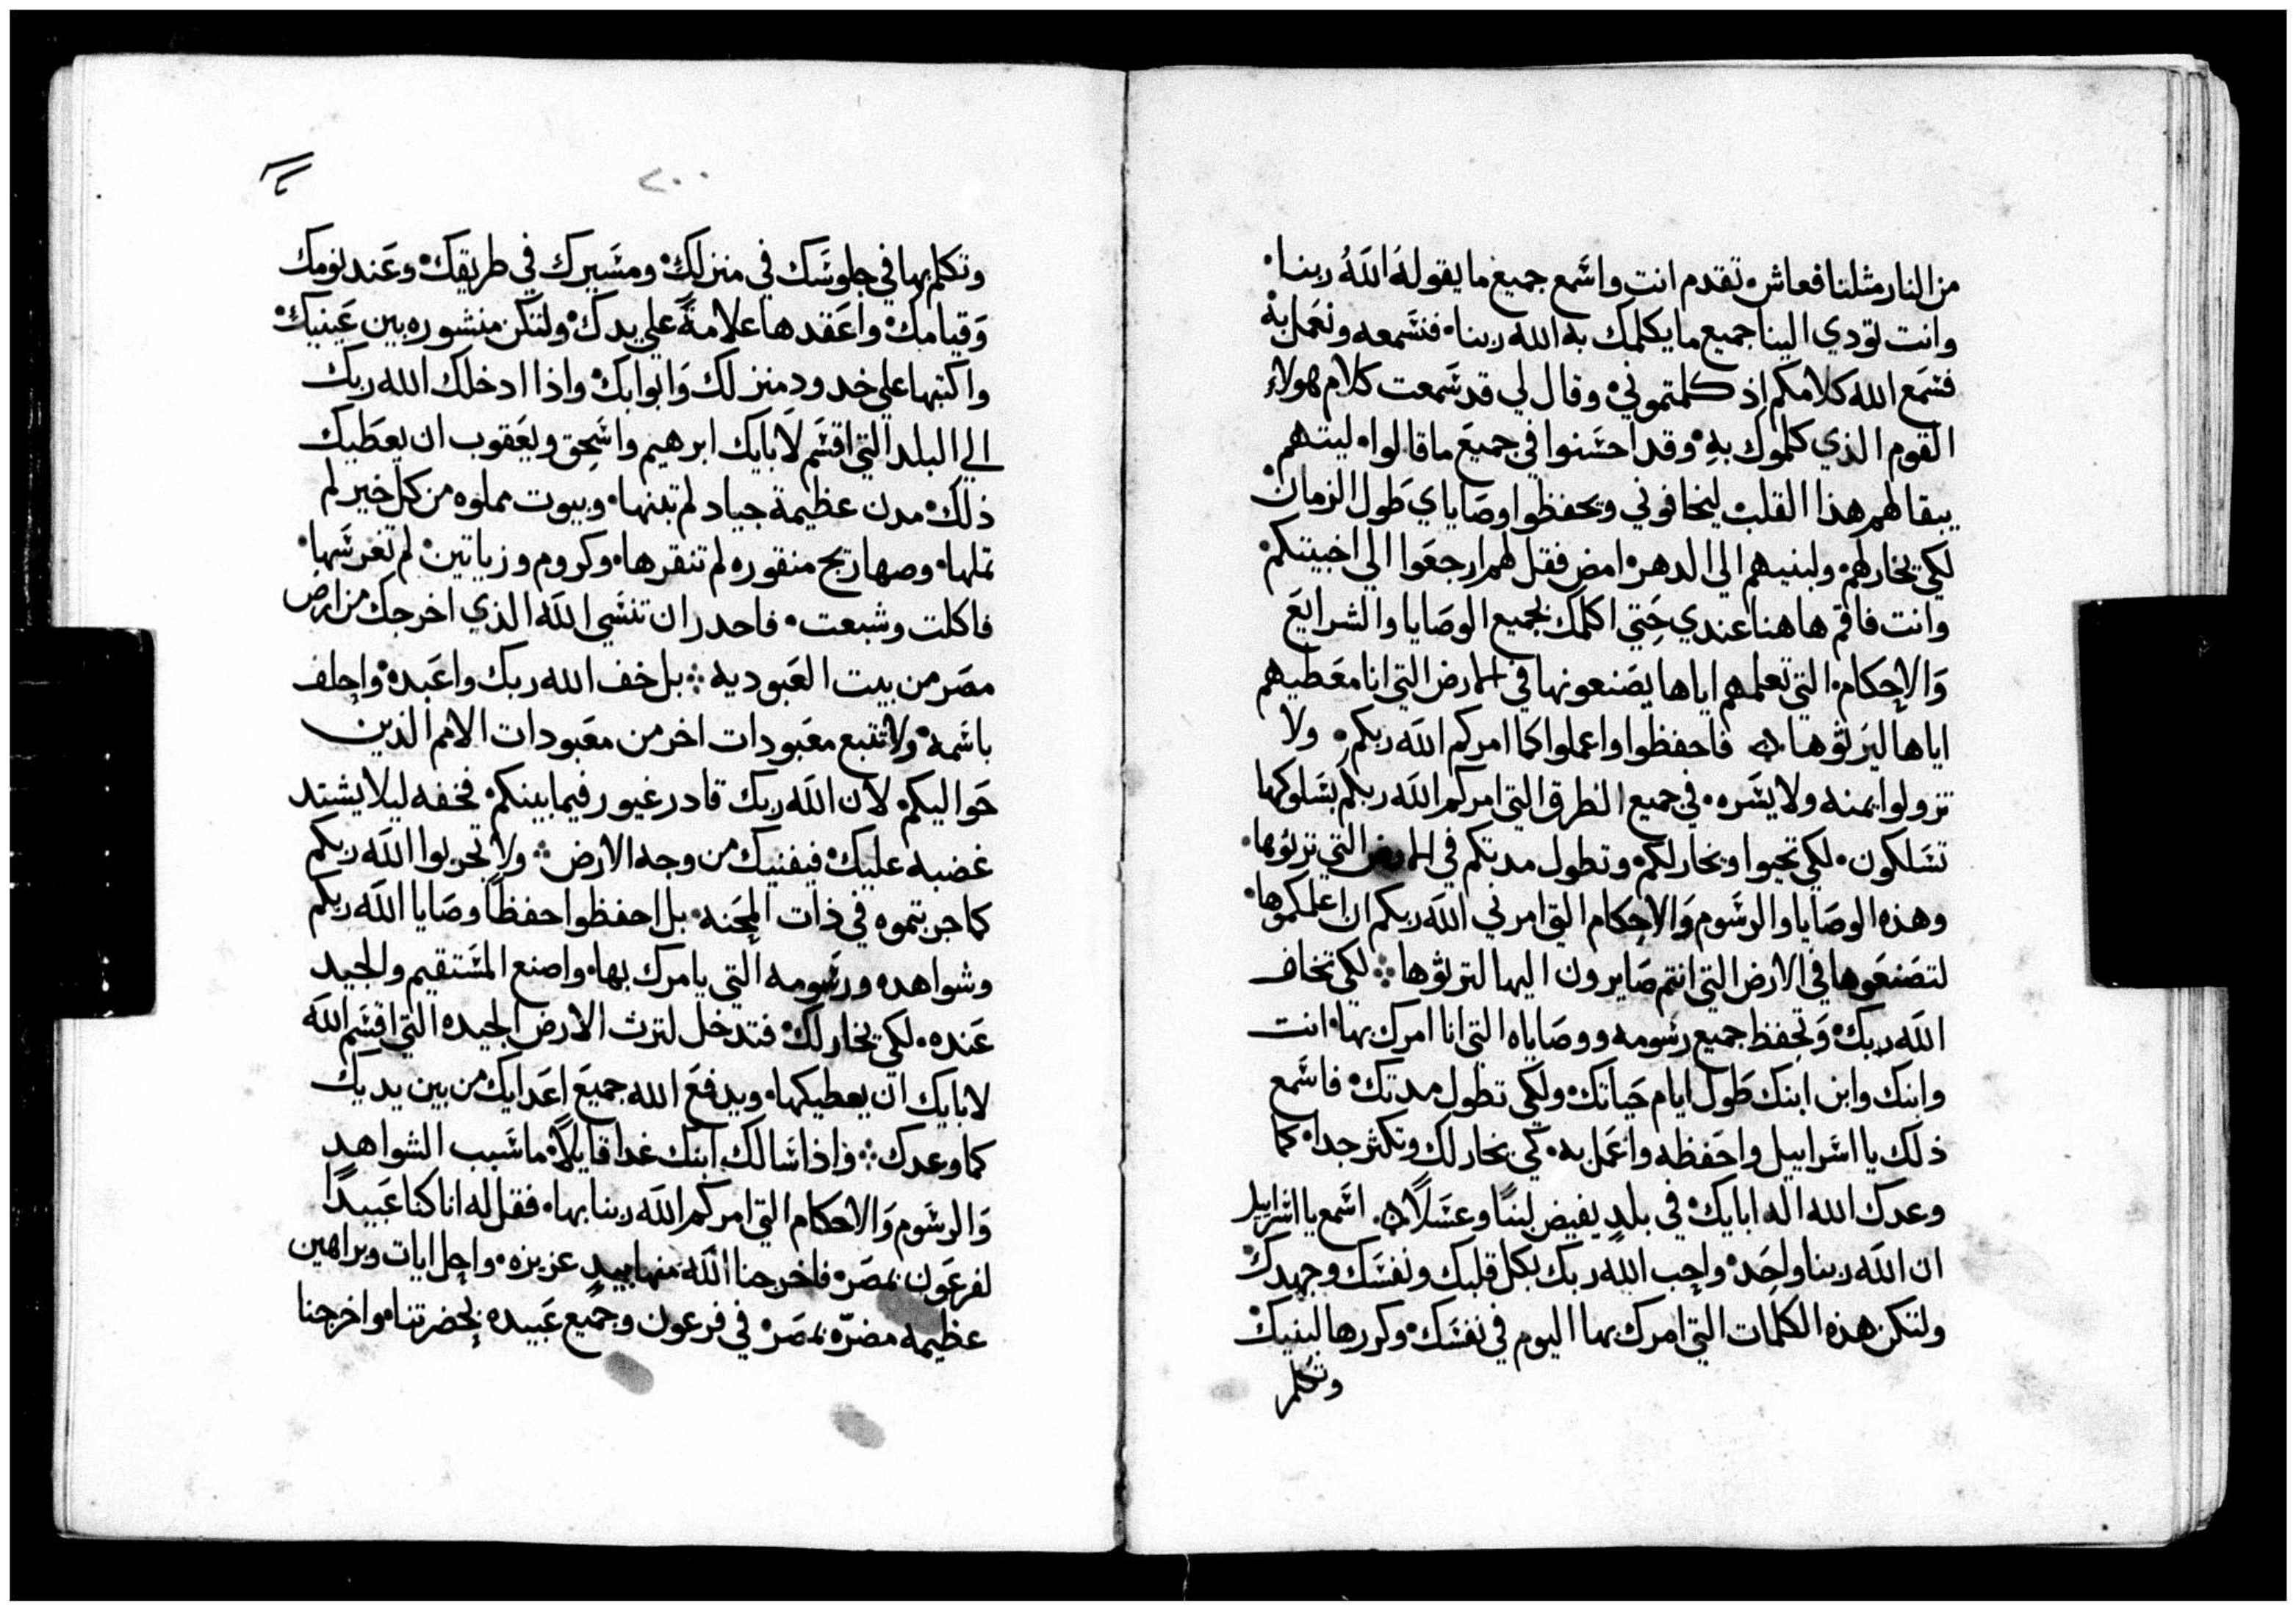 من النار مثلنا فعاش، تقدم انت واسمع جميع ما يقوله الله ربنا.
وانت تودي الينا جميع ما يكلمك به الله ربنا. فنسمعه ونعمل به
فسمع الله كلامكم اذ كلمتموني وقال لي قد سمعت كلام هولاء
القوم الذي كلموك به وقد احسنوا في جميع ما قالوا، ليتهم
يبقا لهم هذا القلب ليخافوني ويحفظوا وصاياي طول الزمان
لكي يخار لهم ولبنيهم الي الدهر امض فقل لهم ارجعوا الي اخبيتكم
وانت فاقم هاهنا عندي حتي اكلمك بجميع الوصايا والشرايع
والاحكام التي تعلمهم اياها يصنعونها في الارض التي انا معطيهم
اياها ليرثوها ۞ فاحفظوا واعملوا كما امركم الله ربكم، ولا
تزولوا يمنه ولا يسره، في جميع الطرق التي امركم الله ربكم بسلوكها
تسلكون، لكي تحيوا ويخار لكم وتطول مدتكم في الارض التي ترثوها.
وهذه الوصايا والرسوم والاحكام التي امرني الله ربكم ان اعلمكموها.
لتصنعوها في الارض التي انتم صايرون اليها لترثوها ⁘ لكي تخاف
الله ربك وتحفظ جميع رسومه ووصاياه التي انا امرك بها، انت
وابنك وابن ابنك طول ايام حياتك ولكي تطول مدتك فاسمع
ذلك يا اسراييل واحفظه واعمل به، كي يخار لك وتكثر جدا كما
وعدك الله اله ابايك في بلد يفيض لبنًا وعسلًا ۞ اسمع يا اسراييل
ان الله ربنا واحد واحب الله ربك بكل قلبك ونفسك وجهدك
ولتكن هذه الكلمات التي امرك بها اليوم في نفسك وكررها لبنيك
وتكلم
٢٠٠
وتكلم بها في جلوسك في منزلك ومسيرك في طريقك وعند نومك
وقيامك واعقدها علامةً علي يدك ولتكن منشوره بين عينيك
واكتبها علي خدود منزلك وابوابك واذا ادخلك الله ربك
الي البلد التي اقسم لابايك ابرهيم واسحق ويعقوب ان يعطيك
ذلك مدن عظيمة جياد لم تبنها، وبيوت مملوه من كل خير لم
تملها، وصهاريج منقوره لم تنقرها، وكروم وزياتين لم تغرسها
فاكلت وشبعت، فاحدر ان تنسي الله الذي اخرجك من ارض
مصر من بيت العبوديه ⁘ بل خف الله ربك واعبده واحلف
باسمه ولا تتبع معبودات اخر من معبودات الامم الذين
حواليكم لان الله ربك قادر غيور فيما بينكم، فخفه ليلا يشتد
غضبه عليك فيفنيك من وجه الارض ⁘ ولا تجربوا الله ربكم
كما جربتموه في ذات المحنه، بل احفظوا حفظًا وصايا الله ربكم
وشواهده ورسومه التي يامرك بها، واصنع المستقيم والجيد
عنده، لكي يخار لك فتدخل لترث الارض الجيده التي اقسم الله
لابايك ان يعطيكها، ويدفع الله جميع اعدايك من بين يديك
كما وعدك ⁘ واذا سالك ابنك غدا قايلًا ما سبب الشواهد
والرسوم والاحكام التي امركم الله ربنا بها، فقل له انا كنا عبيدًا
لفرعون بمصر فاخرجنا الله منها بيد عزيزه، واحل ايات وبراهين
عظيمه مضرّه بمصر في فرعون وجميع عبيده بحضرتنا واخرجنا